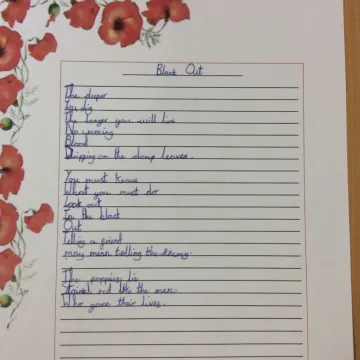 Black Out
The deeper
You dig
The longer you will live
No warning
Blood
Dripping on the damp leaves.
You must know
What you must do
Look out
In the black
Out
Telling a friend
may mean telling the enemy.
The poppies lie
Stained red like the men
Who gave their lives.